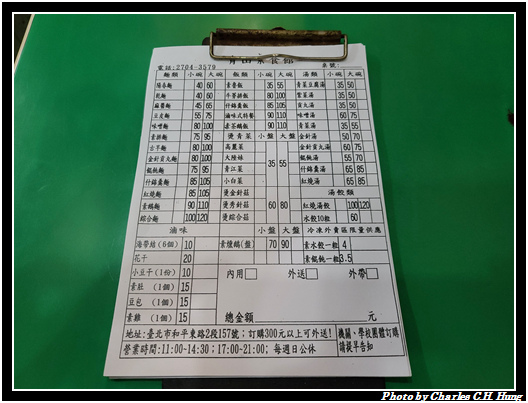 電話:2704-3579 桌號:
麵類 小碗 大碗 飯類 小碗 大碗 湯類 小碗 大碗
陽春麵 40 60 素魯飯 35 55 青菜豆腐湯 35 50
乾麵 40 60 80 100 紫菜湯 35 50
麻醬麵 45 65 什錦燴飯 85 105 貢丸湯 35 50
豆皮麵 55 75 滷味式特餐 90 110 味噌湯 60 75
味噌麵 80 100 素茶鵝飯 90 110 青菜湯 35 55
75 95 燙青菜 小盤 大盤 金針湯 50 70
80 100 高麗菜 35 55 金針貢丸湯 60 75
金針貢丸麵 80 100 大陸妹 餛飩湯 55 70
餛飩麵 75 95 青江菜 什錦羹湯 65 85
什錦羹麵 85 105 小白菜 紅燒湯 65 85
紅燒麵 85 105 燙金針菇 60 80 湯餃類
素鵝麵 90 110 燙秀針菇 紅燒湯餃 100 120
綜合麵 100 120 燙綜合菇 水餃10粒 60
滷味 小盤 大盤 冷凍外賣區限量供應
海帶結(6個) 10 素燻鵝(盤) 70 90 素水餃一粒 4
花干 20 素餛飩一粒 3.5
小豆干(1份) 10 內用 外送 外帶
素肚 (1個) 15
豆包 (1個) 15
素雞 (1個) 15 總金額 元
地址:臺北市和平東路2段157號;訂購300元以上可外送!
營業時間:11:00-14:30;17:00-21:00;每週日公休
機關、學校團體訂購
請提早告知
Photo by Charles C.H. Hung